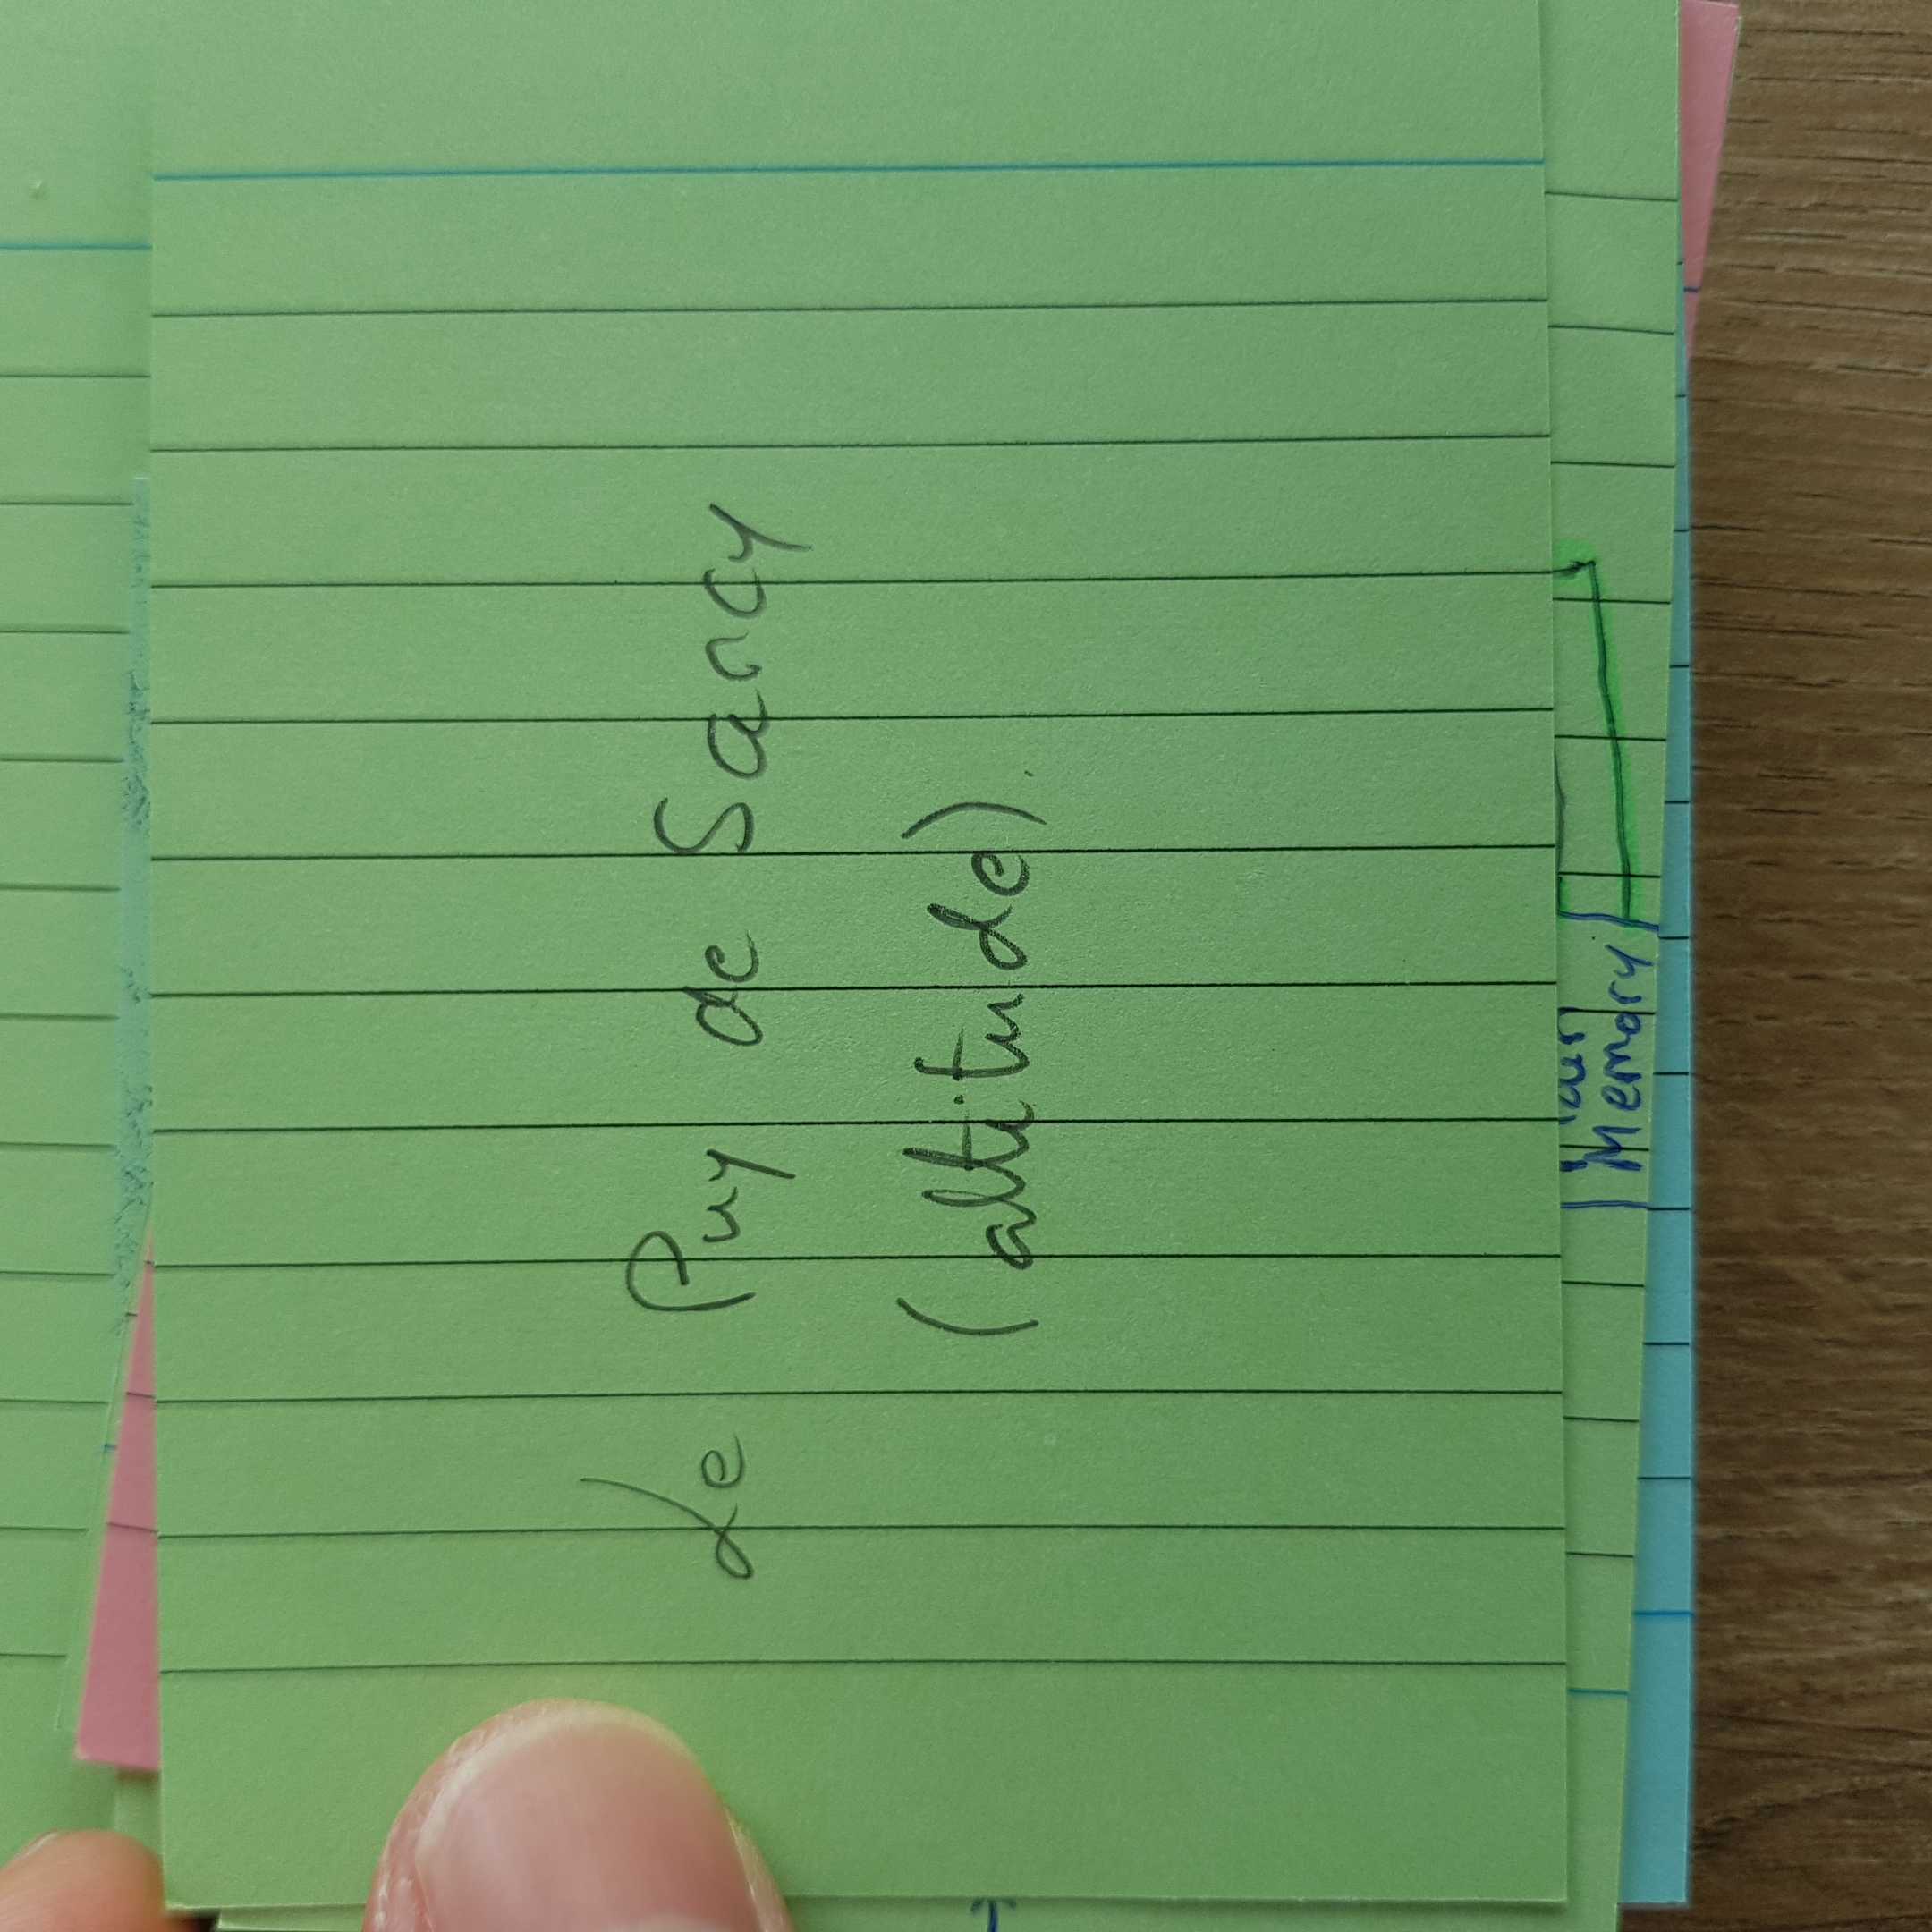 Le Puy de Sancy
(altitude).
Memory